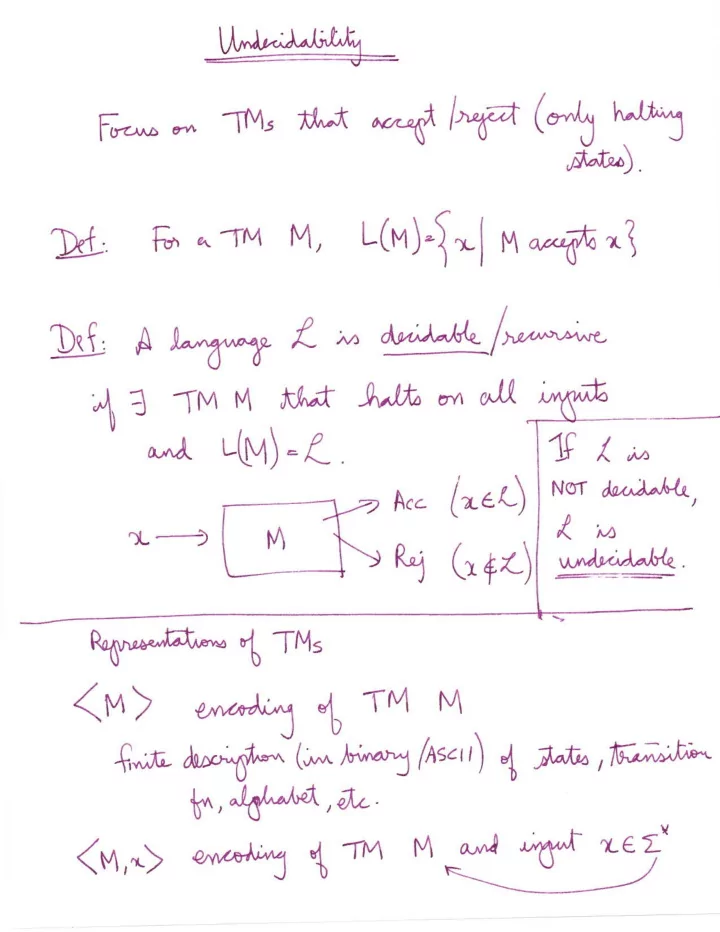 Undecidability
Focus on TMs that accept/reject (only halting
states).
Def: For a TM M, L(M)={x| M accepts x}
Def: A language L is decidable/recursive
if ∃ TM M that halts on all inputs
and L(M)=L.
x → M
Acc (x∈L)
Rej (x∉L)
If L is
NOT decidable,
L is
undecidable.
Representations of TMs
<M> encoding of TM M
finite description (in binary/ASCII) of states, transition
fn, alphabet, etc.
<M,x> encoding of TM M and input x∈Σ*